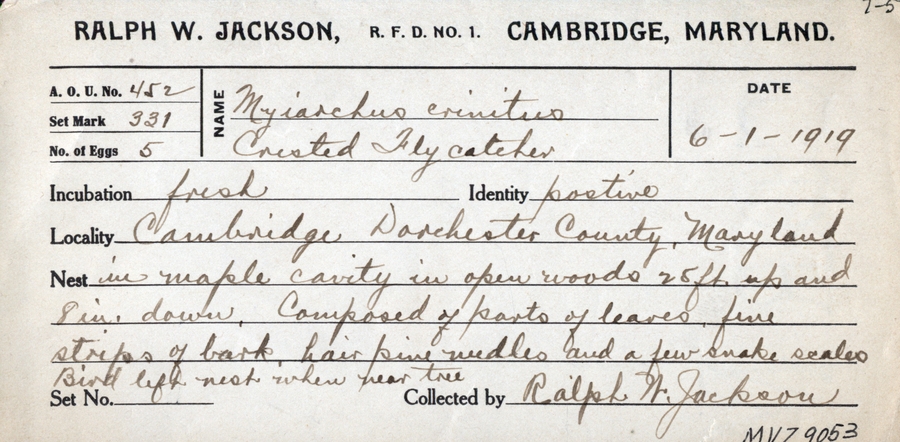 7-5
RALPH W. JACKSON, R. F. D. NO. 1. CAMBRIDGE, MARYLAND.
A. O. U. No. 452
Set Mark 331
No. of Eggs 5
NAME
Myiarchus crinitus
Crested Flycatcher
DATE
6-1-1919
Incubation fresh Identity postive
Locality Cambridge Dorchester County, Maryland
Nest in maple cavity in open woods 25ft. up and
8 in. down. Composed of parts of leaves, fine
strips of bark, hair pine needles and a few snake scales
Bird left nest when near tree
Set No. Collected by Ralph W. Jackson
MVZ 9053